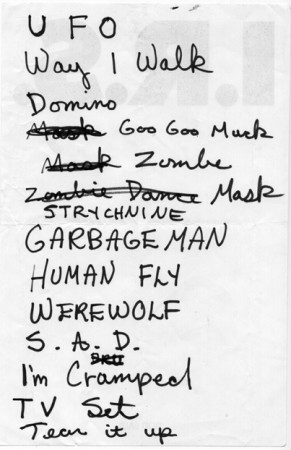 UFO
Way I Walk
Domino
Mask Goo Goo Muck
Mask Zombie
Zombie Dance Mask
STRYCHNINE
GARBAGEMAN
HUMAN FLY
WEREWOLF
S.A.D.
I'm Cramped
TV Set
Tear it up
I.R.S.